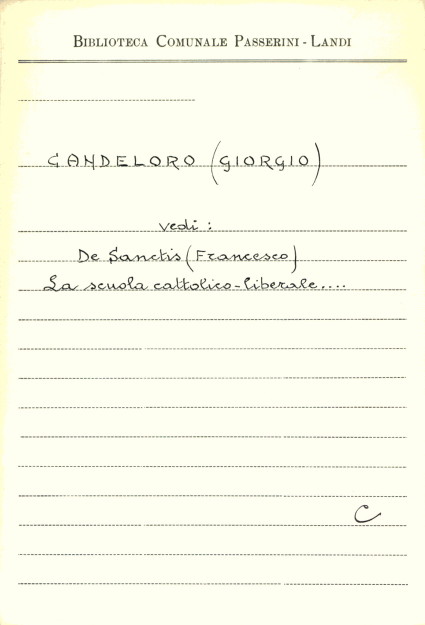 BIBLIOTECA COMUNALE PASSERINI - LANDI
CANDELORO (GIORGIO)
vedi :
De Sanctis (Francesco)
La scuola cattolico-liberale....
C